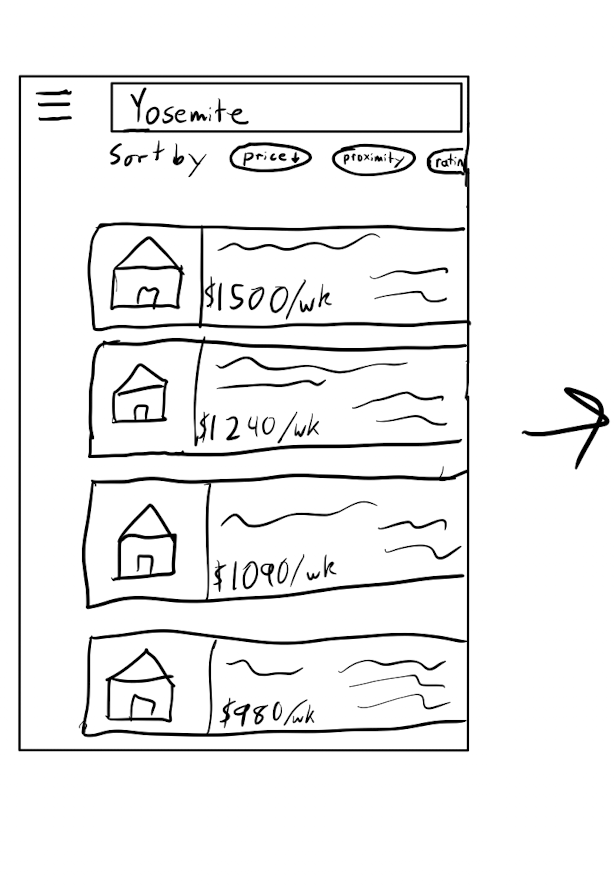 Yosemite
Sort by price↓ proximity ratin
$1500/wk
$1240/wk
$1090/wk
$980/wk